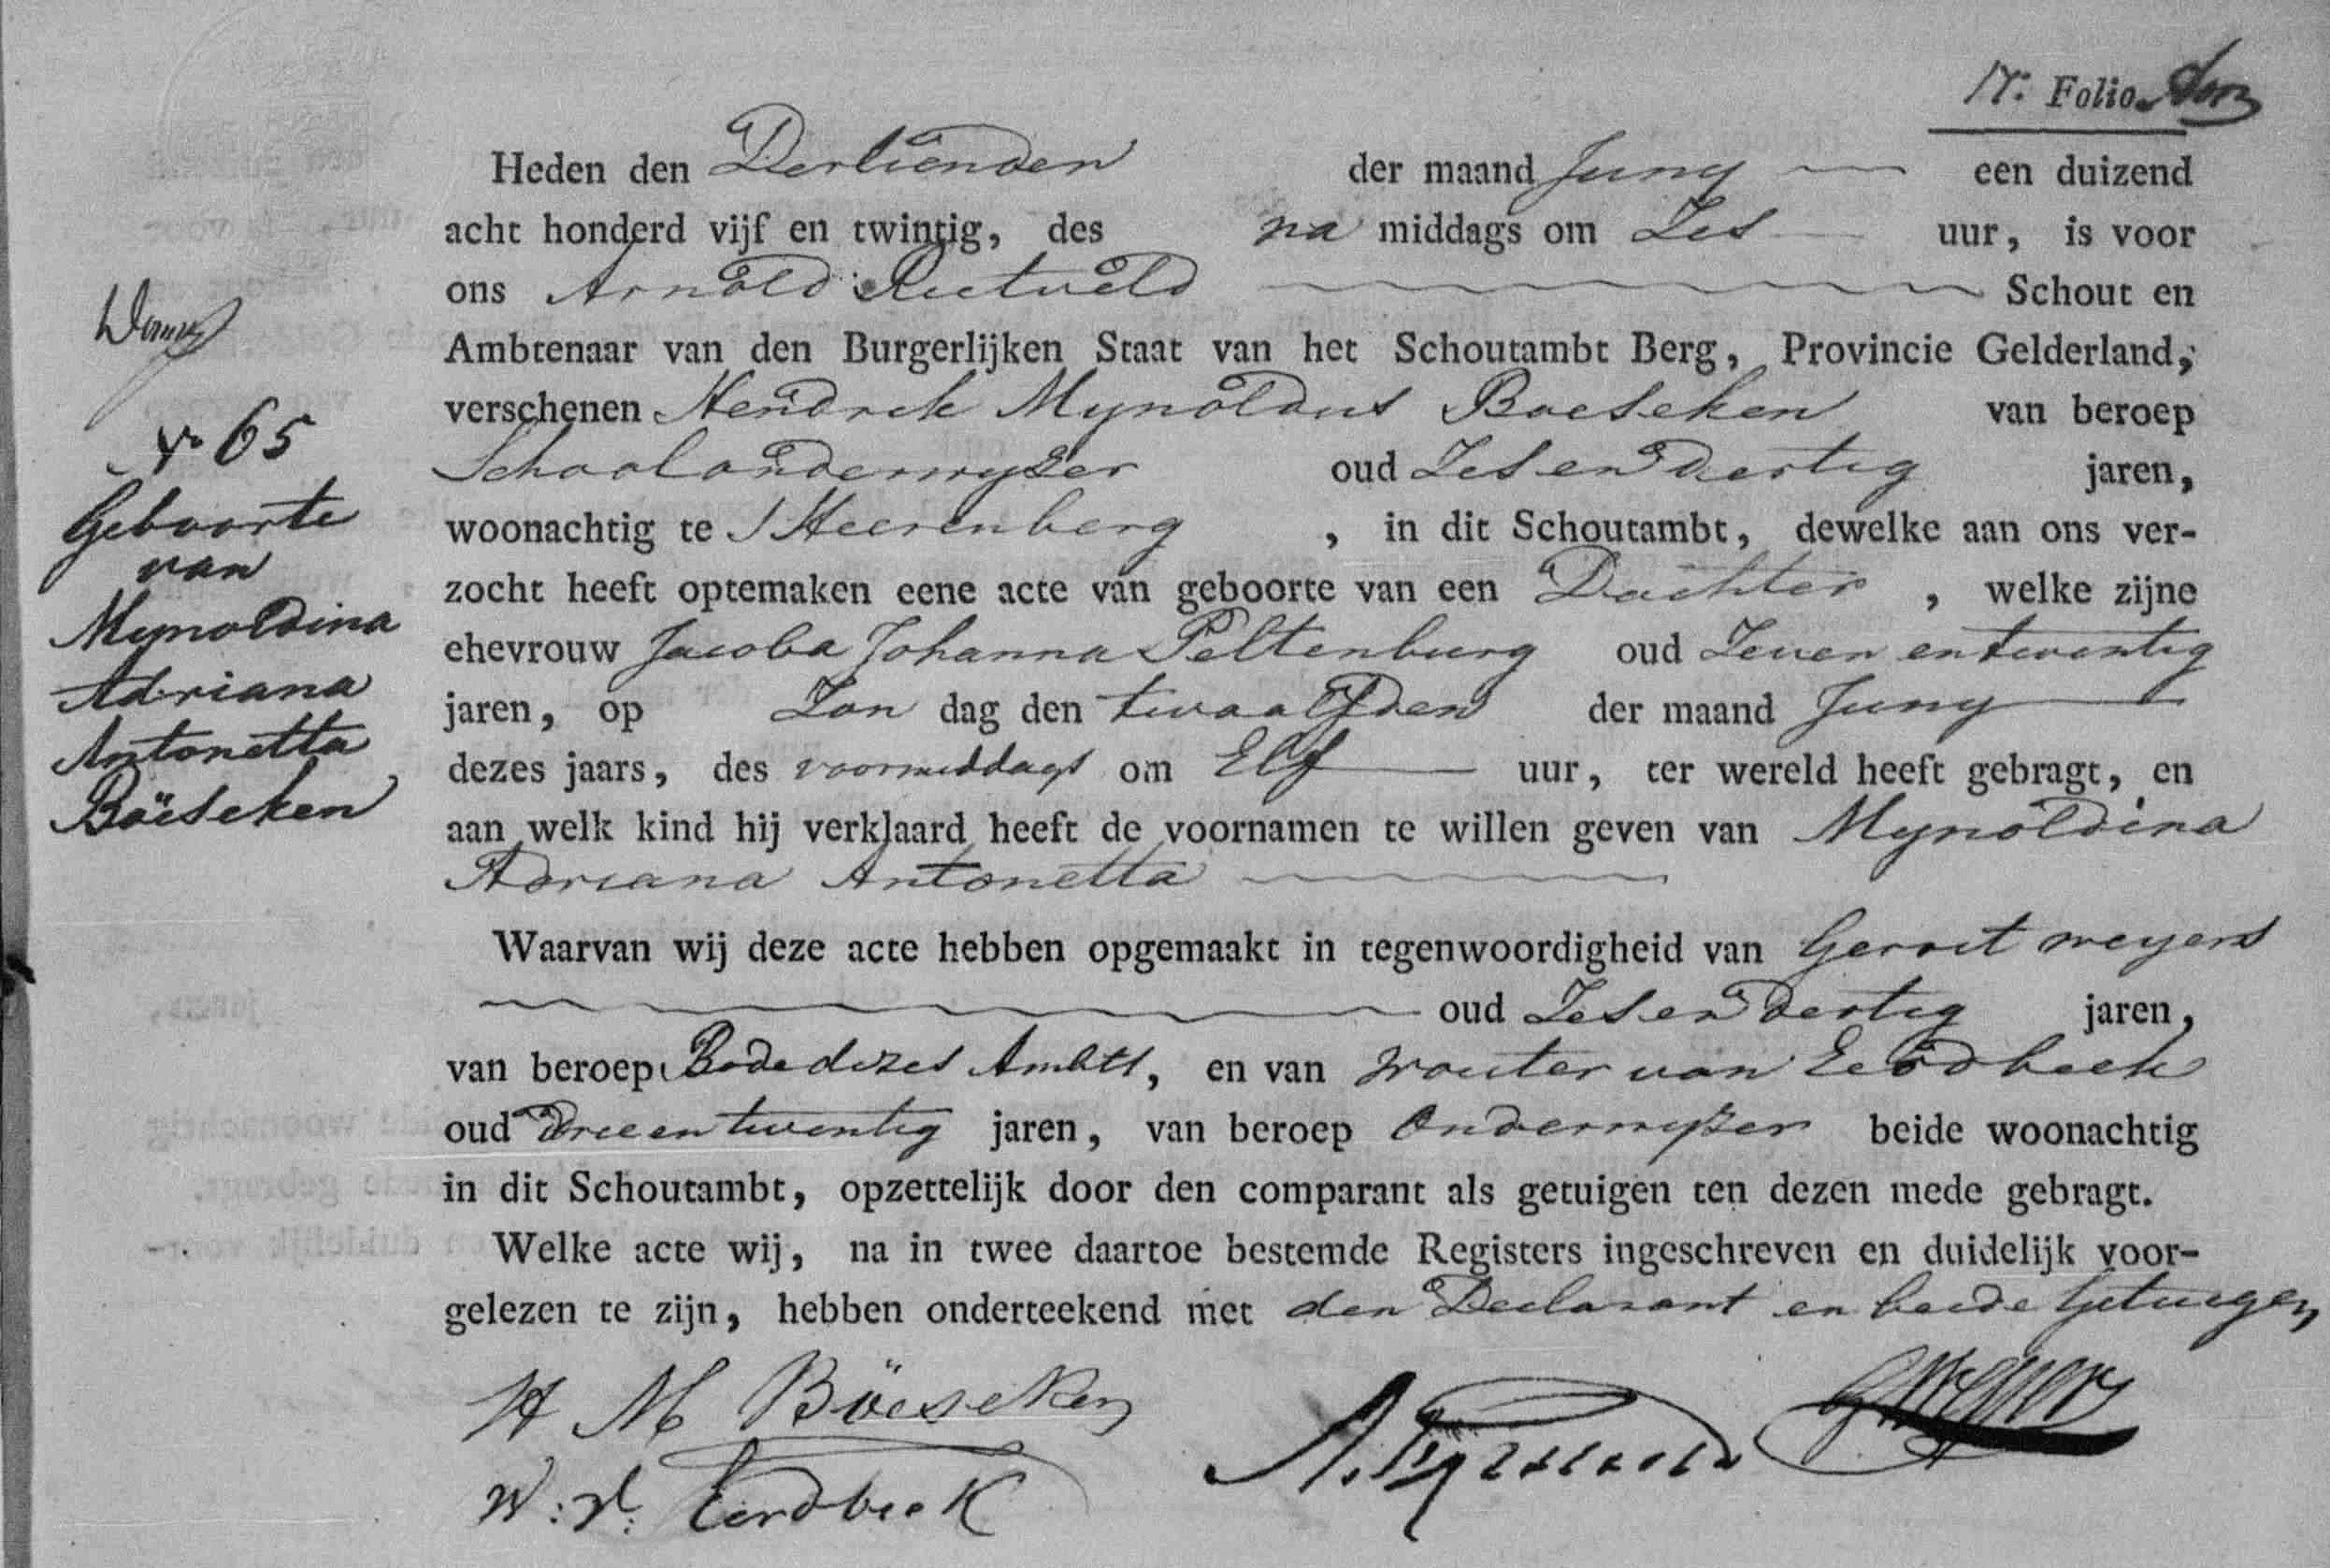 17: Folio
Heden den Dertienden der maand Juny een duizend
acht honderd vijf en twintig, des na middags om Zes uur, is voor
ons Arnold Rietveld Schout en
Ambtenaar van den Burgerlijken Staat van het Schoutambt Berg, Provincie Gelderland,
verschenen Hendrik Mynoldus Boeseken van beroep
Schoolonderwyzer oud Zes en dertig jaren,
woonachtig te s'Heerenberg, in dit Schoutambt, dewelke aan ons ver-
zocht heeft optemaken eene acte van geboorte van een Dochter, welke zijne
ehevrouw Jacoba Johanna Peltenburg oud Zeven en twentig
jaren, op Zon dag den twaalfden der maand Juny
dezes jaars, des voormiddags om Elf uur, ter wereld heeft gebragt, en
aan welk kind hij verklaard heeft de voornamen te willen geven van Mynoldina
Adriana Antonetta
Waarvan wij deze acte hebben opgemaakt in tegenwoordigheid van Gerrit meyers
oud Zes en dertig jaren,
van beroep Bode dezes Ambts, en van wouter van Eerdbeek
oud drie en twentig jaren, van beroep Onderwyzer beide woonachtig
in dit Schoutambt, opzettelijk door den comparant als getuigen ten dezen mede gebragt.
Welke acte wij, na in twee daartoe bestemde Registers ingeschreven en duidelijk voor-
gelezen te zijn, hebben onderteekend met den Declarant en beide Getuigen
No 65
Geboorte
van
Mynoldina
Adriana
Antonetta
Böeseken
H M Böeseken
GMeyers
W: V: Eerdbeek